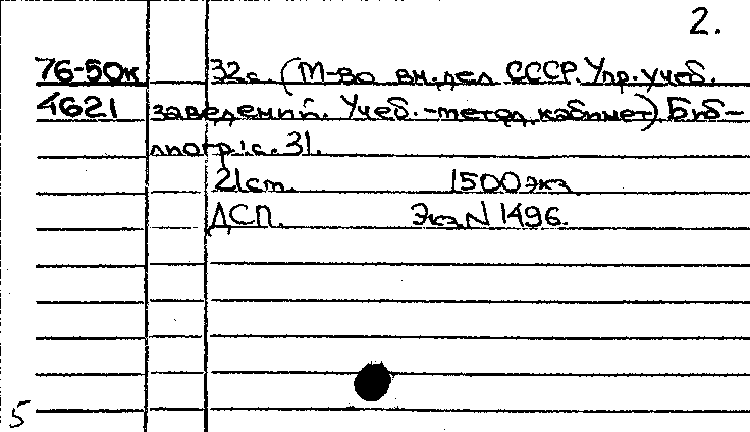 2.
76-50к 32с. (М-во вн. дел СССР. Упр. учеб.
4621 заведений. Учеб.-метод. кабинет) Биб-
лиогр.: с. 31.
21 см. 1500 экз
ДСП. Экз N 1496.
5